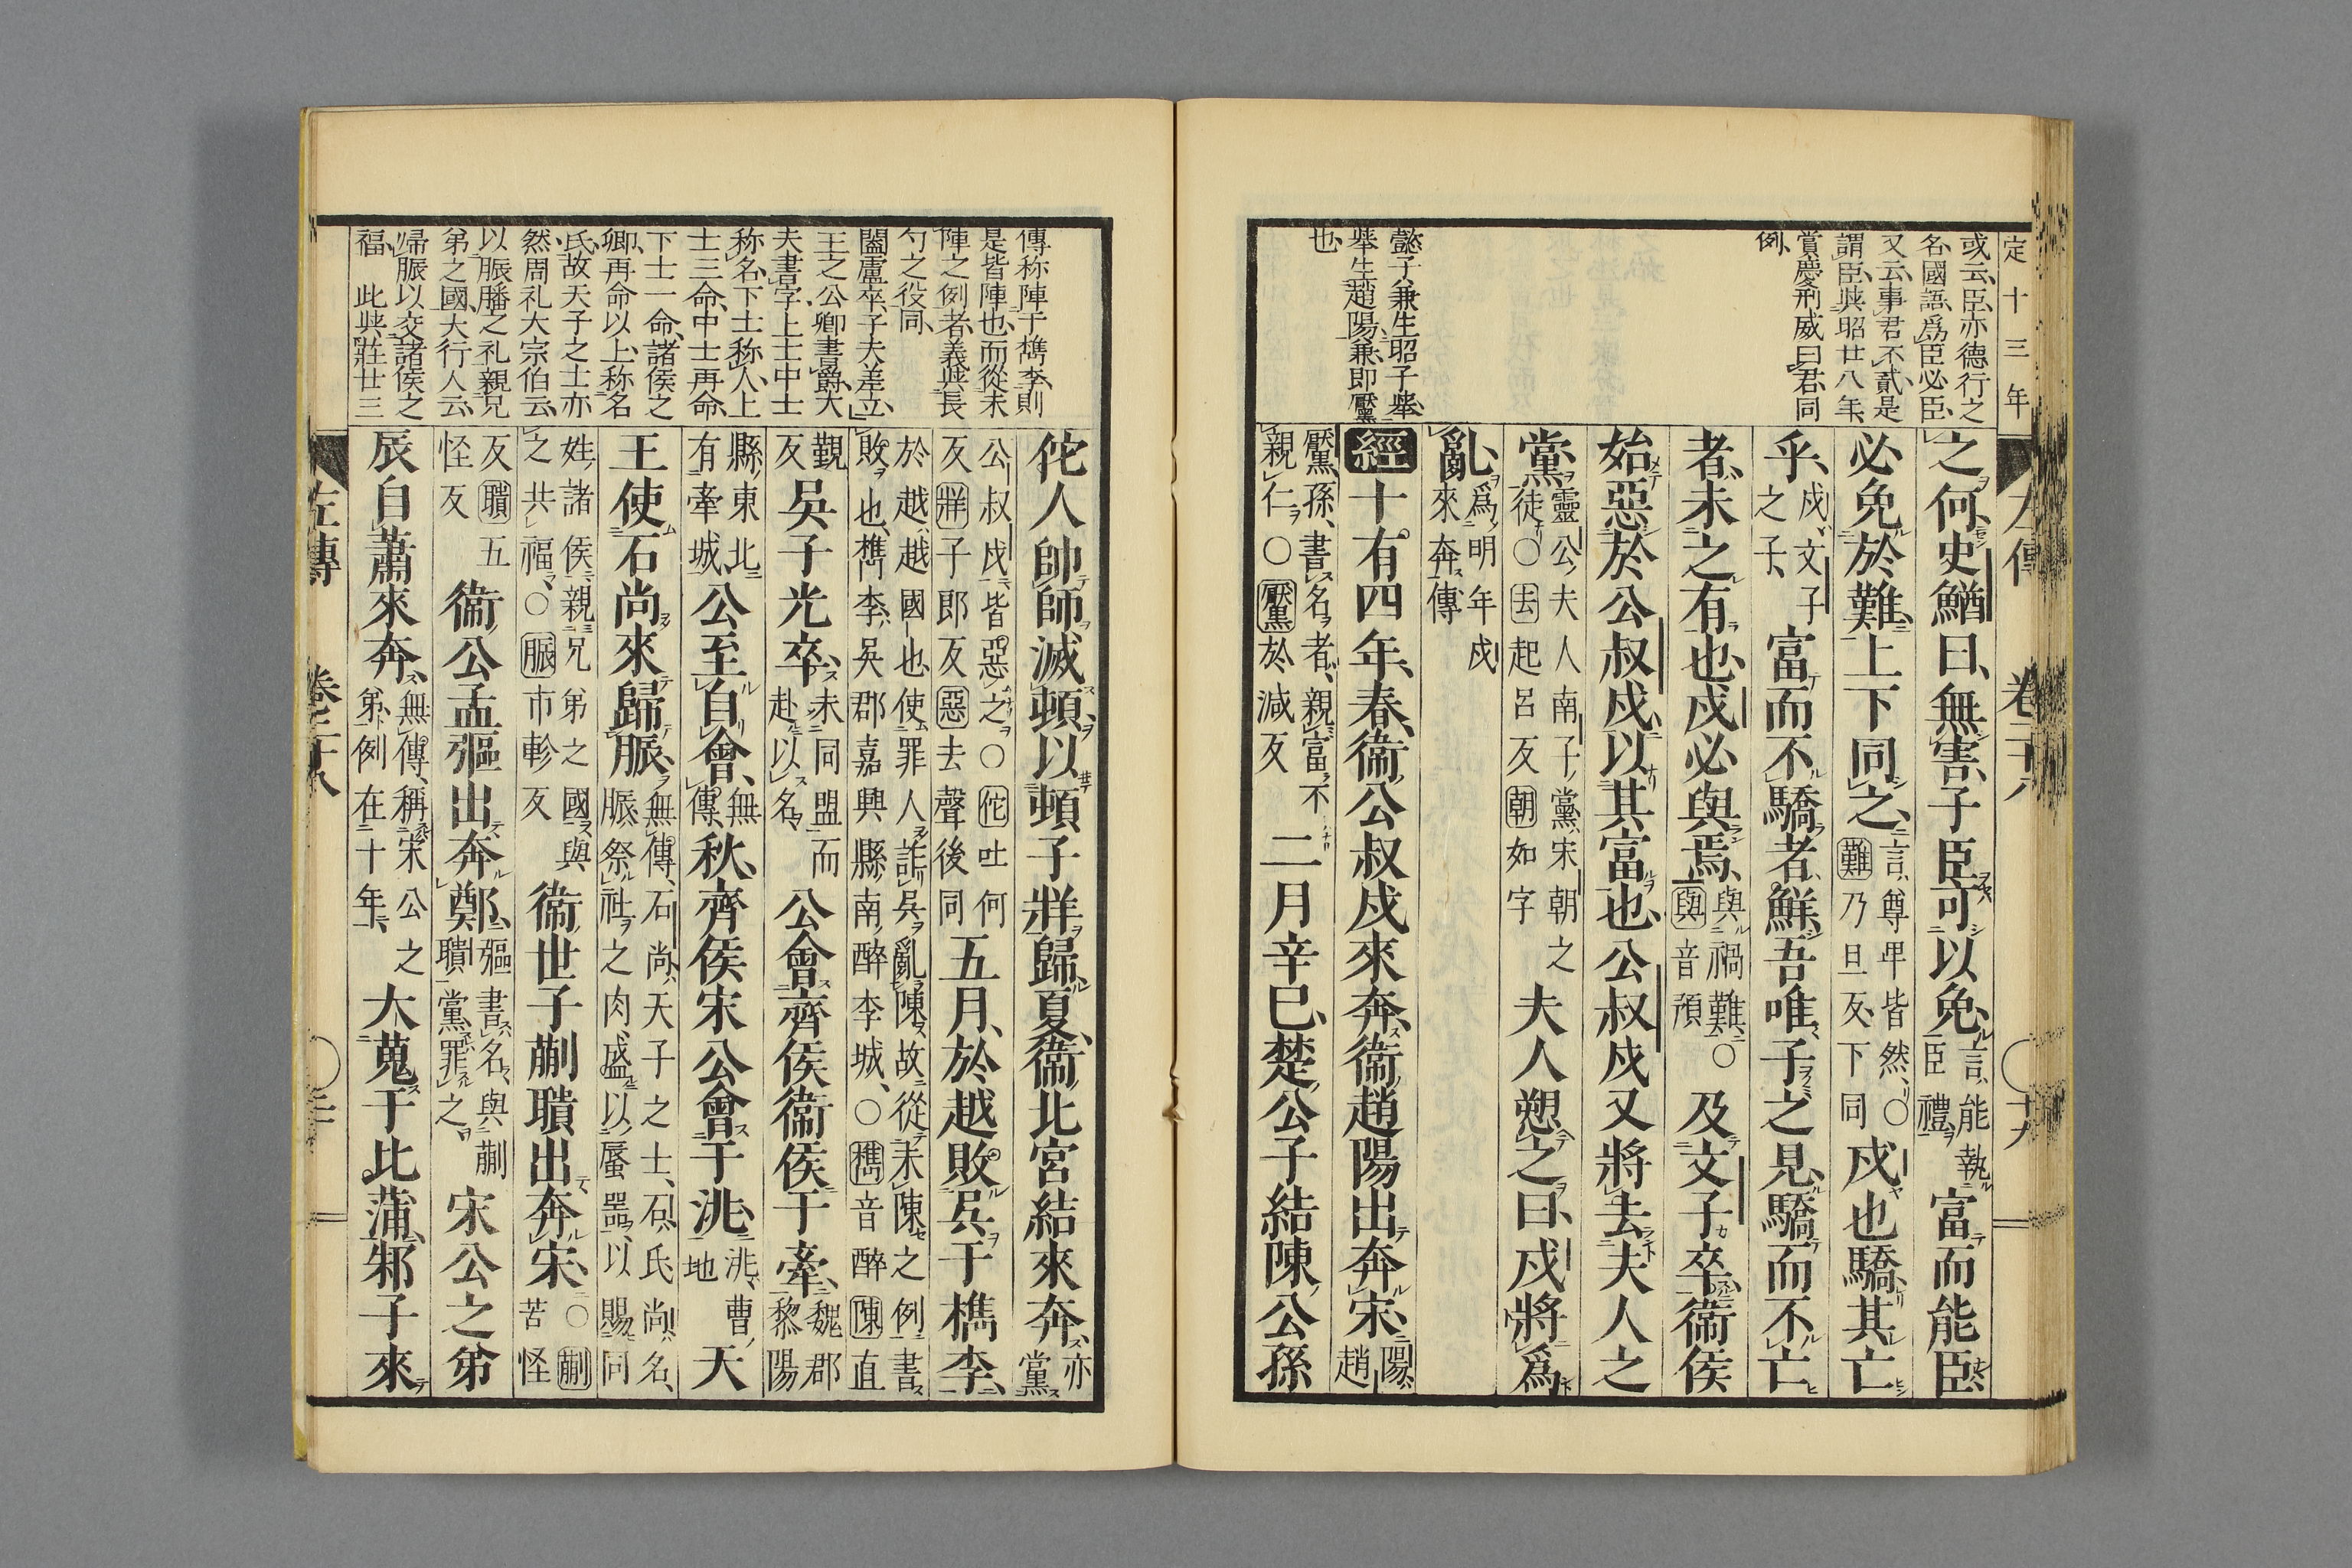 定十三年
或云臣亦德行之
名國語爲臣必臣
又云事君不貳是
謂臣與昭廿八年
賞慶刑威曰君同
例
懿子兼生昭子舉
舉生趙陽兼即黶
也
之何史鰌曰無害子臣可以免言能執臣禮富而能臣
必免於難上下同之言尊卑皆然○難乃旦反下同戌也驕其亡
乎戌文子之子富而不驕者鮮吾唯子之見驕而不亡
者未之有也戌必與焉與禍難○與音預及文子卒衞侯
始惡於公叔戌以其富也公叔戌又將去夫人之
黨靈公夫人南子黨宋朝之徒○去起呂反朝如字夫人愬之曰戌將爲
亂爲明年戌來奔傳
經十有四年春衞公叔戌來奔衞趙陽出奔宋陽趙
黶孫書名者親富不親仁○黶於減反二月辛巳楚公子結陳公孫
傳称陣于檇李則
是皆陣也而從未
陣之例者義與長
勺之役同
闔廬卒子夫差立
王之公卿書爵大
夫書字上士中士
称名下士称人上
士三命中士再命
下士一命諸侯之
卿再命以上称名
氏故天子之士亦
然周礼大宗伯云
以脤膰之礼親兄
弟之國大行人云
歸脤以交諸侯之
福此與莊廿三
佗人帥師滅頓以頓子牂歸夏衞北宮結來奔亦黨
公叔戌皆惡之○佗吐何反牂子郎反惡去聲後同五月於越敗吳于檇李
於越越國也使罪人詐吳亂陳故從未陳之例書敗也檇李吳郡嘉興縣南醉李城○檇音醉陳直
覲反吳子光卒未同盟而赴以名公會齊侯衞侯于牽魏郡黎陽
縣東北有牽城公至自會無傳秋齊侯宋公會于洮洮曹地天
王使石尚來歸脤無傳石尚天子之士石氏尚名脤祭社之肉盛以蜃器以賜同
姓諸侯親兄弟之國與之共福○脤市軫反衞世子蒯聵出奔宋○蒯苦怪
反聵五怪反衞公孟彄出奔鄭彄書名與蒯聵黨罪之宋公之弟
辰自蕭來奔無傳稱宋公之弟例在十年大蒐于比蒲邾子來
左傳 卷二十八